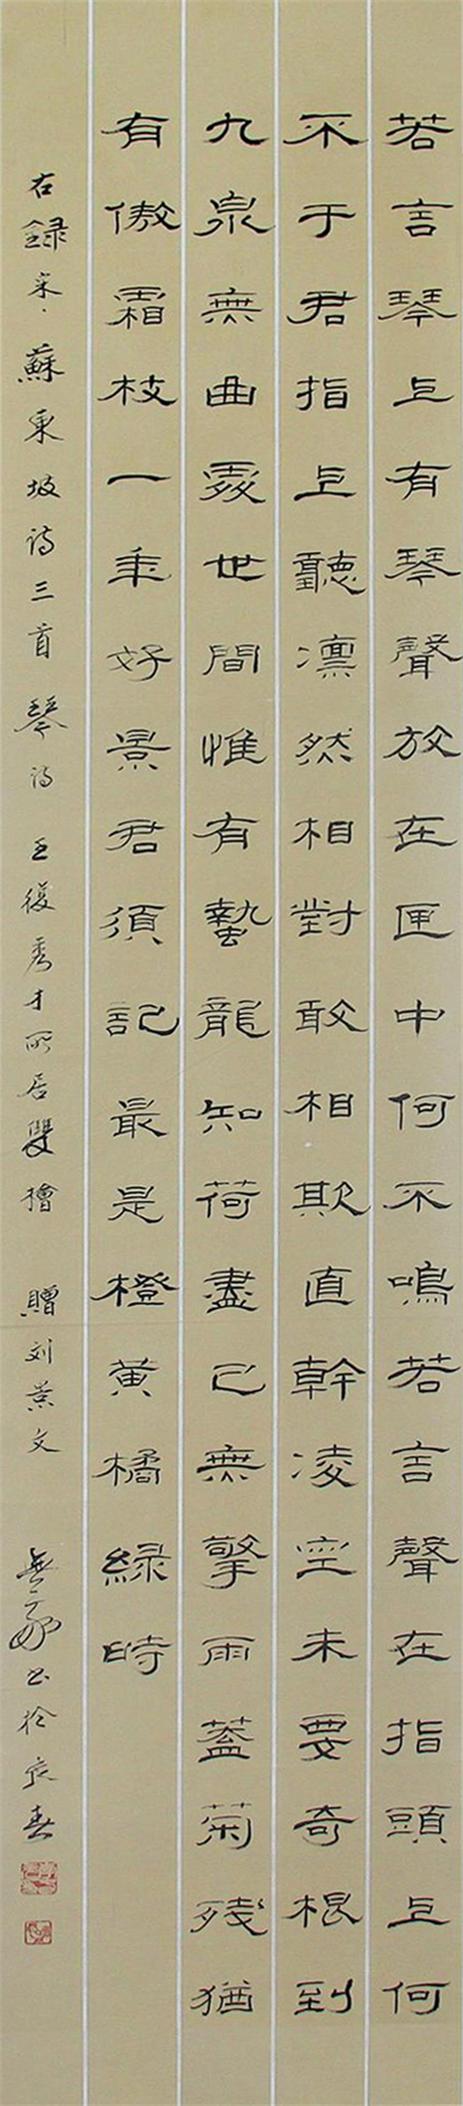 若言琴上有琴聲放在匣中何不鳴若言聲在指頭上何
不于君指上聽凛然相對敢相欺直幹凌空未要奇根到
九泉無曲處世間惟有蟄龍知荷盡已無擎雨蓋菊殘猶
有傲霜枝一年好景君須記最是橙黃橘緑時
右録宋·蘇東坡诗三首 琴诗 王復秀才所居雙檜 贈刘景文 书於春